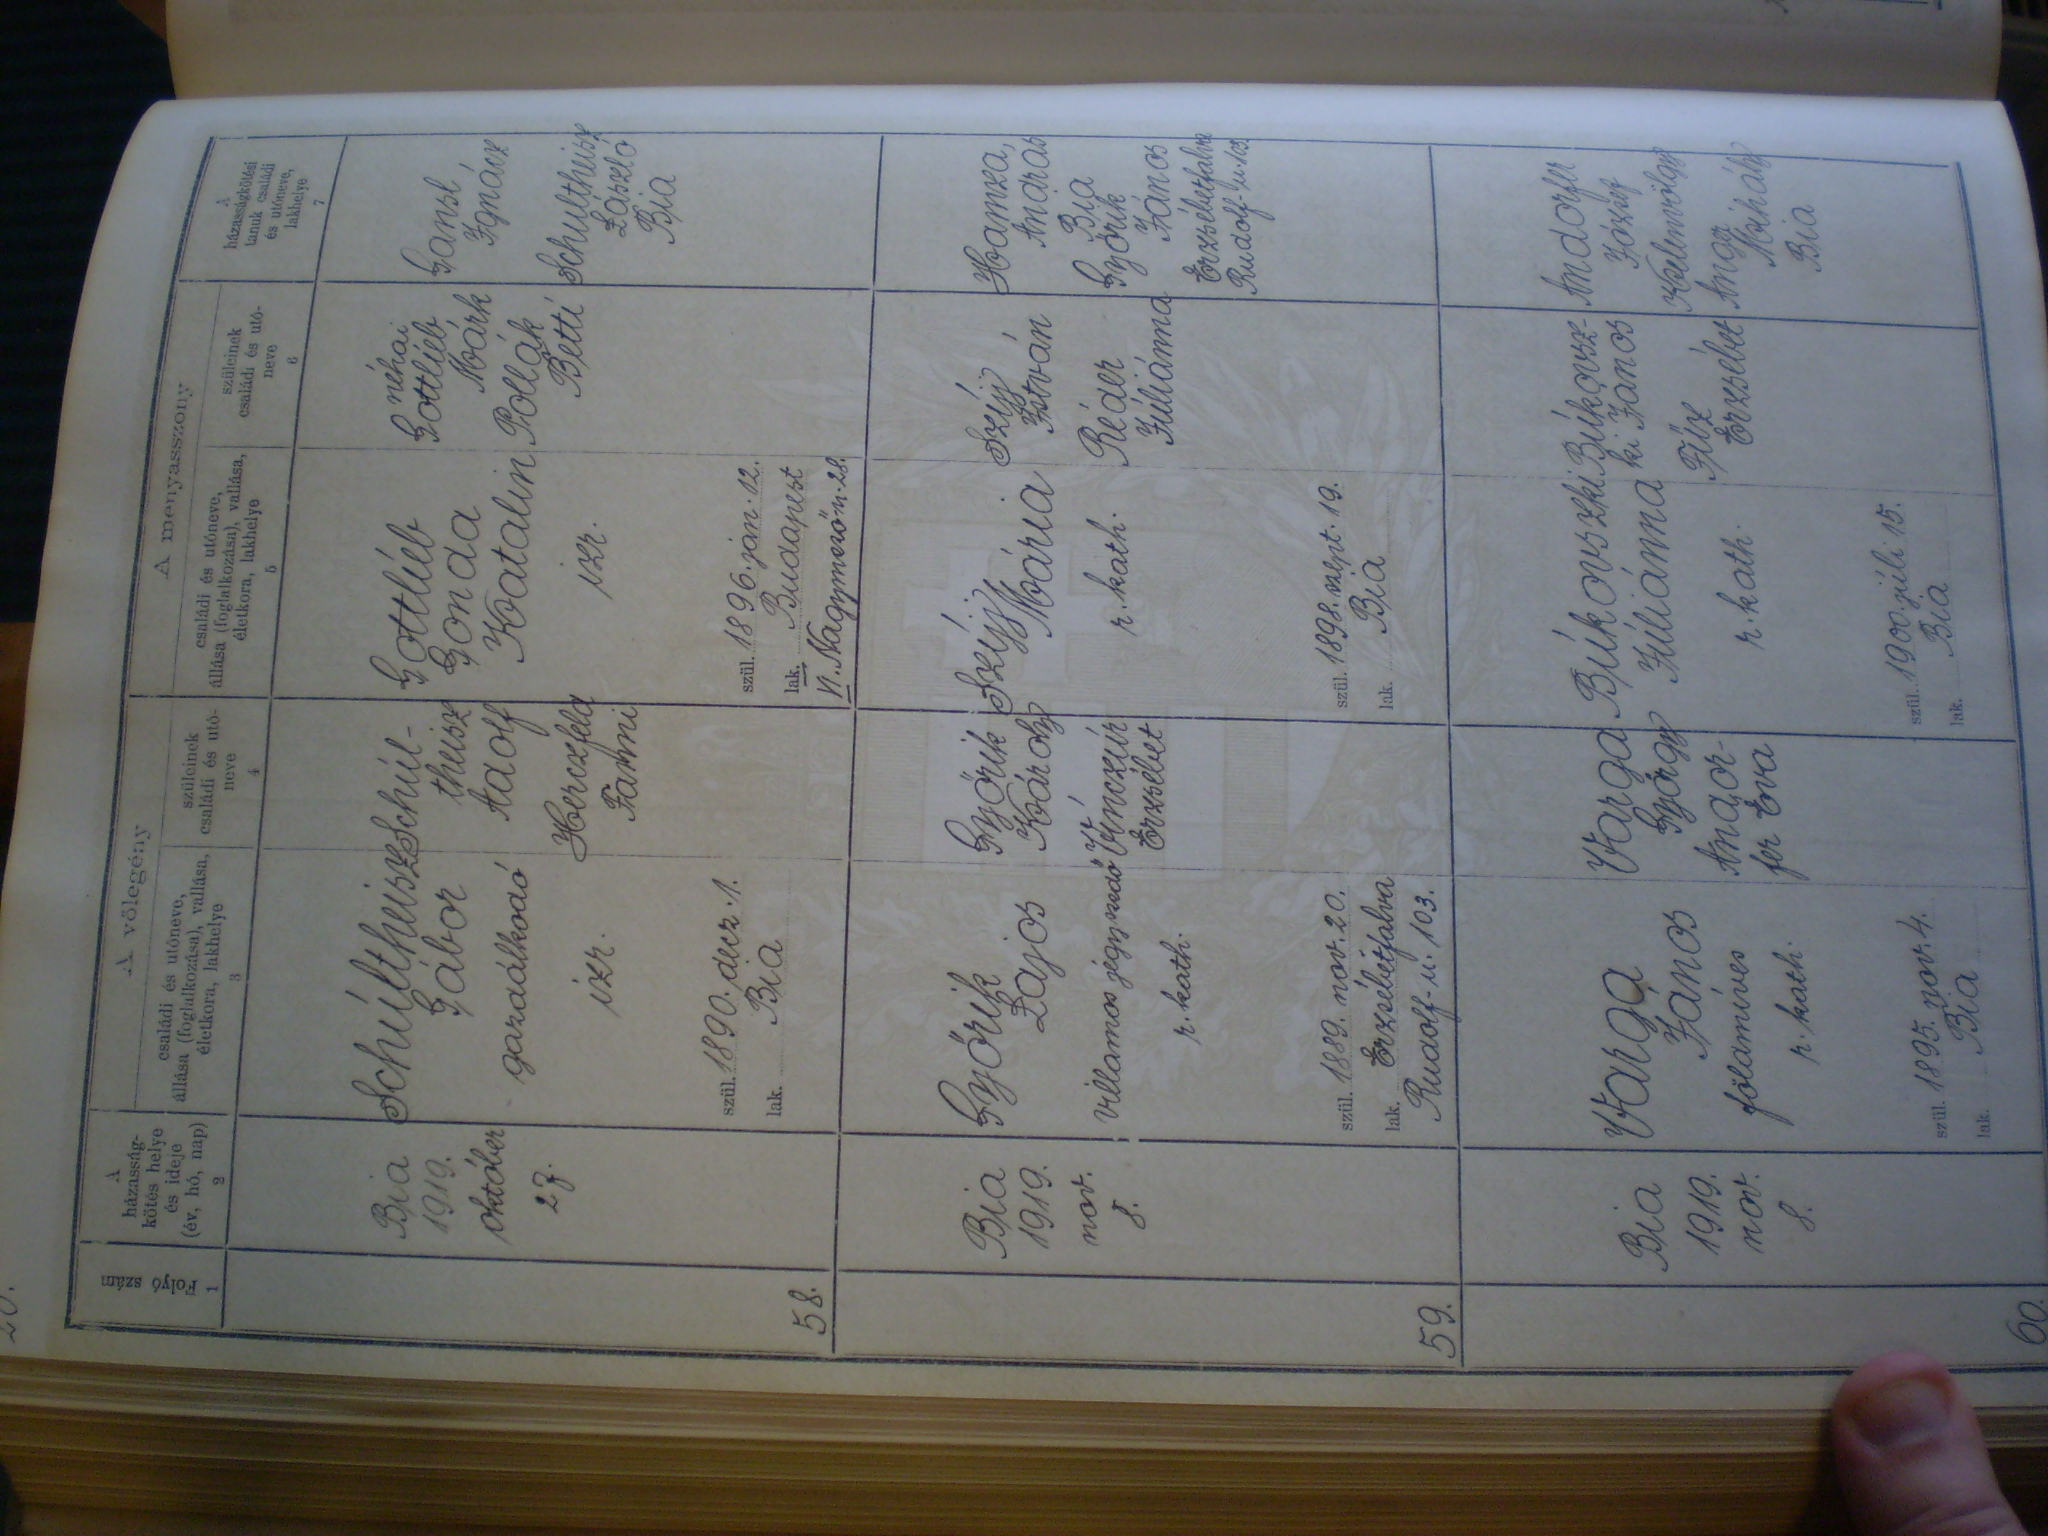 A völegény
A menyasszony
Folyó szám
1
A
házasság-
kötés helye
és ideje
(év, hó, nap)
2
családi és utóneve,
állása (foglalkozása), vallása,
életkora, lakhelye
3
szüleinek
családi és utó-
neve
4
családi és utóneve,
állása (foglalkozása), vallása,
életkora, lakhelye
5
szüleinek
családi és utó-
neve
6
A
házasságkötési
tanuk családi
és utóneve,
lakhelye
7
58.
Bia
1919.
október
27.
Schultheisz
Gábor
gazdálkodó
izr.
szül. 1890. decz. 1.
lak. Bia
Schul-
theisz
Adolf
Herczfeld
Fanni
Gottlieb
Gonda
Katalin
izr.
szül. 1896. ján. 12.
lak. Budapest
VI. Nagymező u. 28.
néhai
Gottlieb
Márk
Pollák
Betti
Gansl
Ignácz
Schultheisz
László
Bia
59.
Bia
1919.
nov.
8.
Győrik
Lajos
villamos jegyszedő
r. kath.
szül. 1889. nov. 20.
lak. Erzsébetfalva
Rudolf-u. 103.
Győrik
Károly
Vinczúr
Erzsébet
Szíjj
Mária
r. kath.
szül. 1898. szept. 19.
lak. Bia
Szíjj
István
Réder
Júliánna
Hamza,
András
Bia
Győrik
János
Erzsébetfalva
Rudolf-u. 103.
60.
Bia
1919.
nov.
8.
Varga
János
földmíves
r. kath.
szül. 1895. nov. 4.
lak. Bia
Varga
György
Andor-
fer Éva
Bukovszki
Júliánna
r. kath.
szül. 1900. júli 15.
lak. Bia
Bukovsz-
ki János
Fűsz
Erzsébet
Andorfer
József
Kelenvölgy
Angi
Mihály
Bia